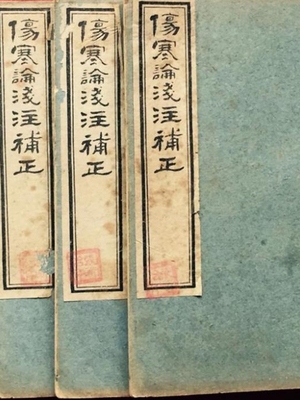 傷寒論淺注補正
傷寒論淺注補正
傷寒論淺注補正